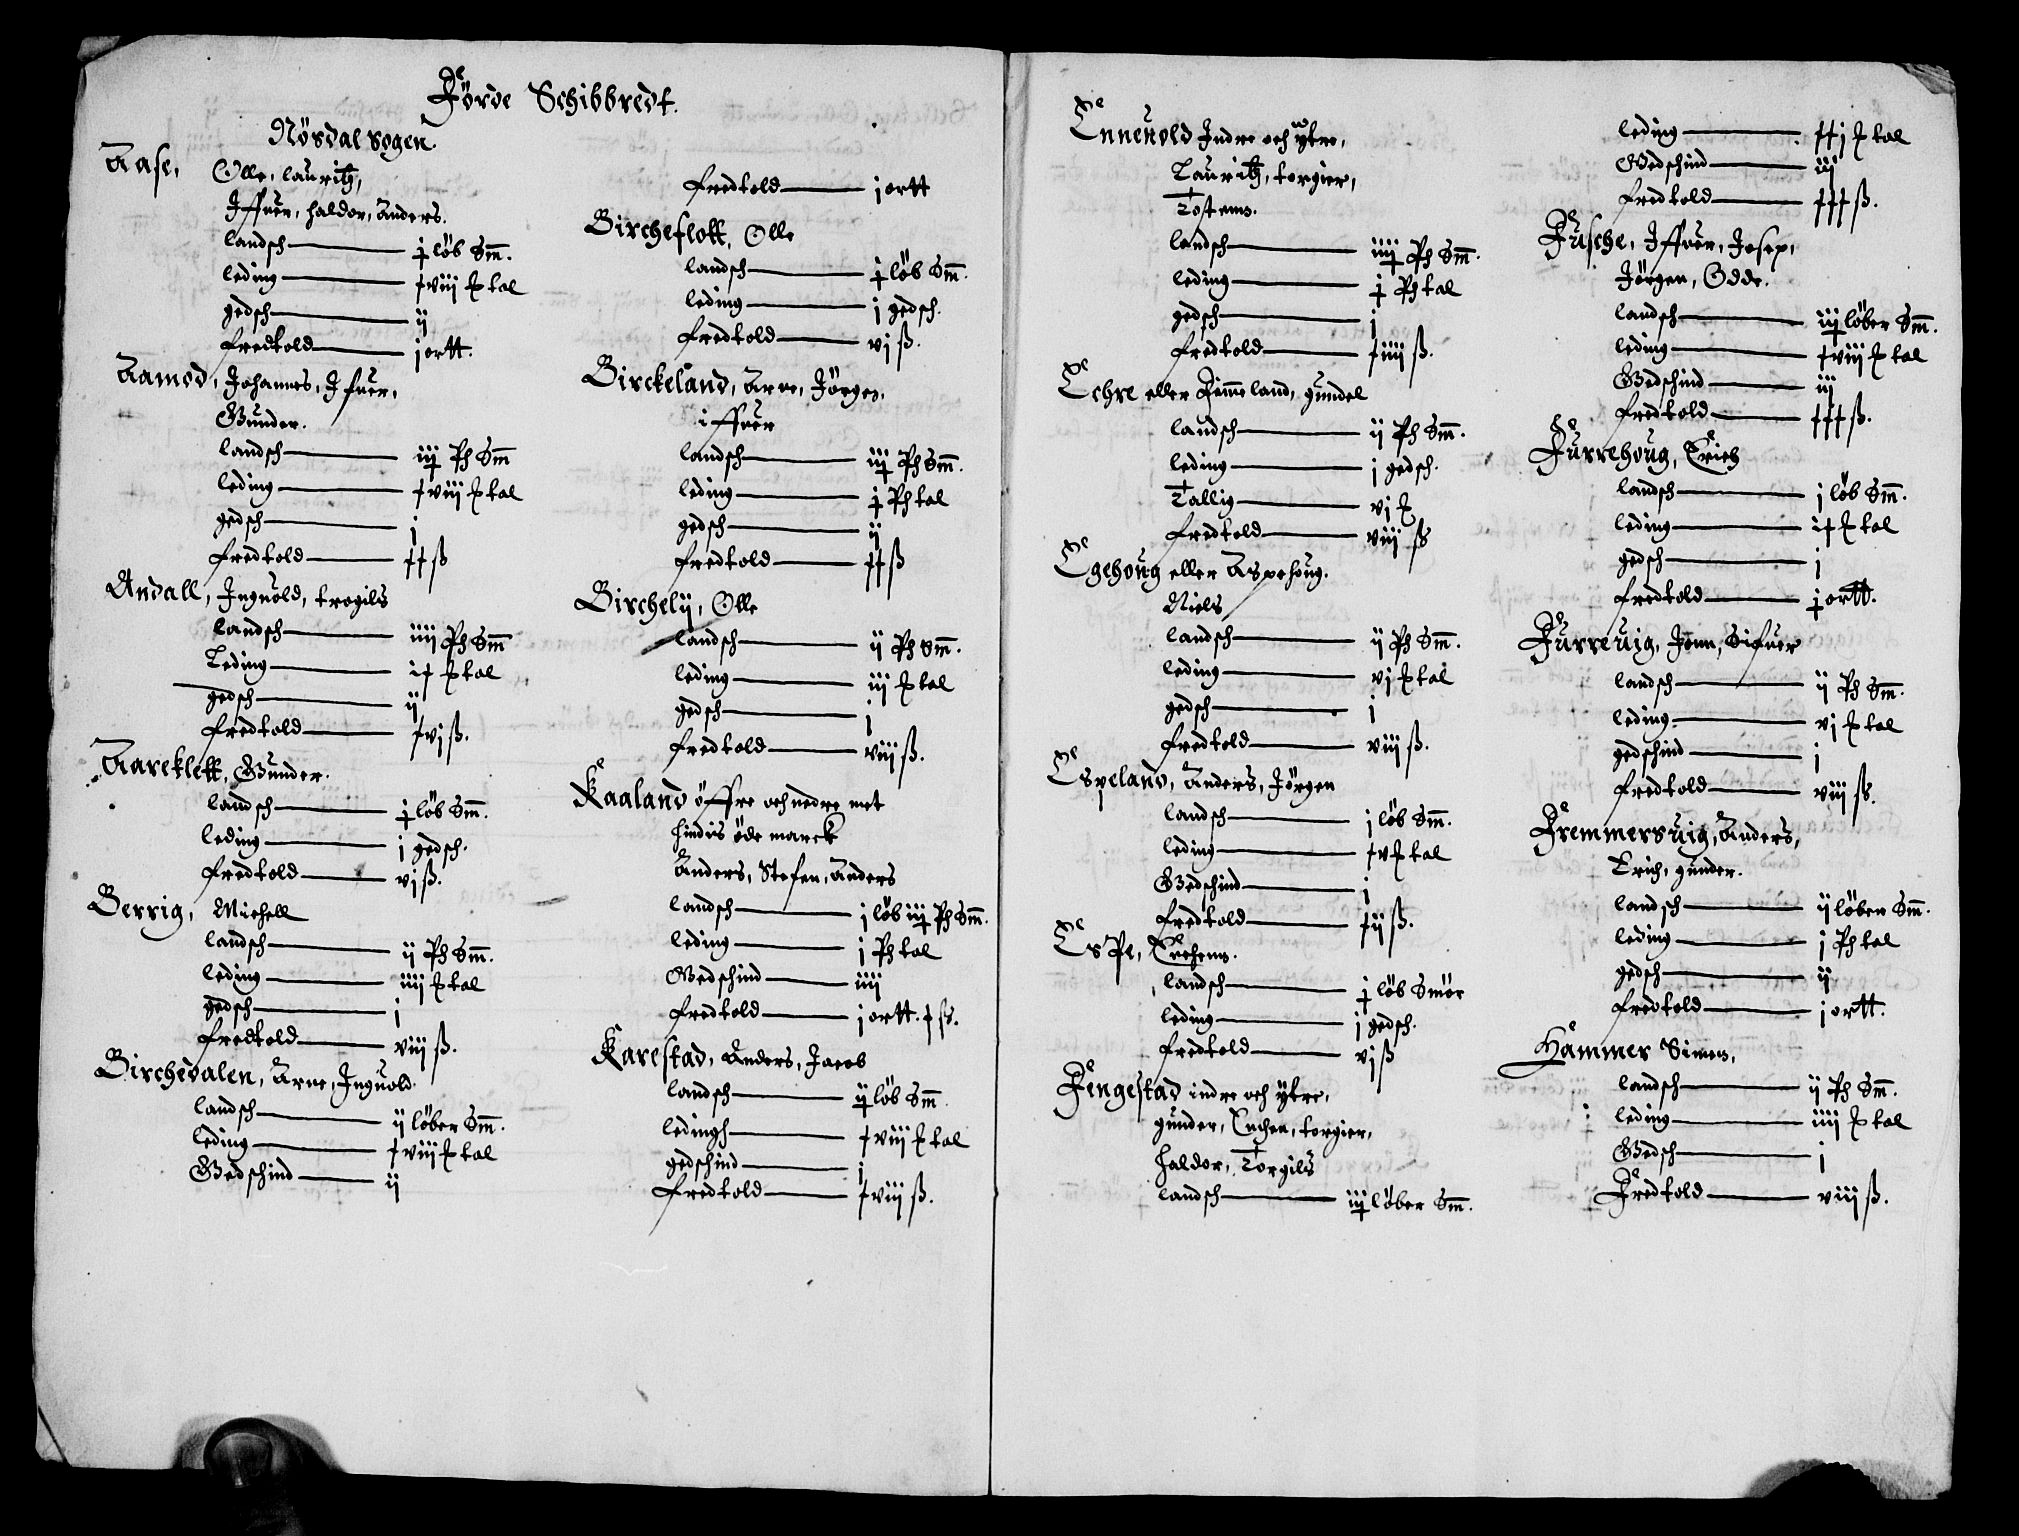 Förde Schibbredt.
Nösdal sogen.
Aase, Olle, lauritz,
Iffuer, haldor, Anders.
landsch j löb Sm.
leding xviij ꝶ tal
gedsch ij
fredtold j ortt.
Aamod, Johannes, Ifuer,
Gunder.
landsch iij Ph Sm
leding xviij ꝶ tal
gedsch j
fredtold xx ß
Andall, Inguold, trogils
landsch iiij Ph Sm
Leding ix ꝶ tal
gedsch ij
fredtold xvj ß.
Aareklett, Gunder.
landsch j löb Sm.
leding j gedsch.
fredtold vj ß.
Berrig, Michell
landsch ij Ph Sm.
leding iiij ꝶ tal
gedsch j
fredtold viij ß.
Birchedalen, Arne, Inguold.
landsch ij löber Sm.
leding xviij ꝶ tal
Gedschind ij
fredtold j ortt
Bircheflott, Olle
landsch j löb Sm.
leding j gedsch.
fredtold vj ß.
Birckeland, Arne, Jörgen,
iffuer
landsch iij Ph Sm.
leding j Ph tal
gedsch ij
fredtold xx ß
Birchelij, Olle
landsch ij Ph Sm.
leding iij ꝶ tal
gedsch j
fredtold viij ß.
Kaaland öffre och nedre met
hindis öde marck
Anders, Stefen, Anders
landsch j löb iij Ph Sm.
leding j Ph tal
Gedschind iiij
fredtold j ortt. x ß.
Karestad, Anders, Jacob
landsch ij löb Sm.
leding xviij ꝶ tal
gedschind j
fredtold xviij ß.
Enneuold Indre och ytre,
Lauritz, torgier,
Tostens.
landsch iiij Ph Sm.
leding j Ph tal
gedsch j
fredtold xiiij ß.
Echre eller Rimmeland, gundel
landsch ij Ph Sm.
leding j gedsch.
Tallig vj ꝶ
fredtold viij ß
Egehoug eller Aspehoug.
Niels
landsch ij Ph Sm.
leding vj ꝶ tal
gedsch j
fredtold viij ß.
Espeland, Anders, Jörgen
landsch j löb Sm.
leding xv ꝶ tal
Gedschind j
fredtold xij ß.
EsPe,
landsch j löb Smör
leding j gedsch.
fredtold vj ß
Fengestad indre och ytre,
gunder, Enchen, torgier,
haldor, Torgils
landsch iij löber Sm.
leding xxj ꝶ tal
Gedschind iij
fredtold xxx ß.
Fusche, Iffuer, Josep,
Jörgen, Odde.
landsch iij löber Sm.
leding xviij ꝶ tal
Gedschind iij
fredtold xxx ß.
Furrehoug, Erich
landsch j löb Sm.
leding ix ꝶ tal
gedsch j
fredtold j ortt.
Furreuig, Jonn, Sifuer
landsch ij Ph Sm.
leding vj ꝶ tal
gedschind j
fredtold viij ß.
Fremmersuig, Anders,
Erich, gunder.
landsch ij löber Sm.
leding j Ph tal
gedsch ij
fredtold j ortt.
Hammer Simen,
landsch ij Ph Sm.
leding iiij ꝶ tal
Gedsch j
Fredtold viij ß.